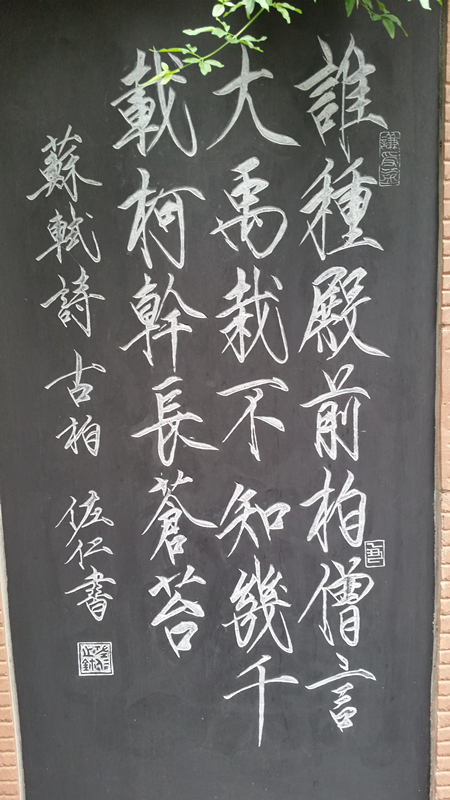 誰種殿前柏僧言
大禹栽不知幾千
載柯幹長蒼苔
蘇軾詩 古柏 佐仁書